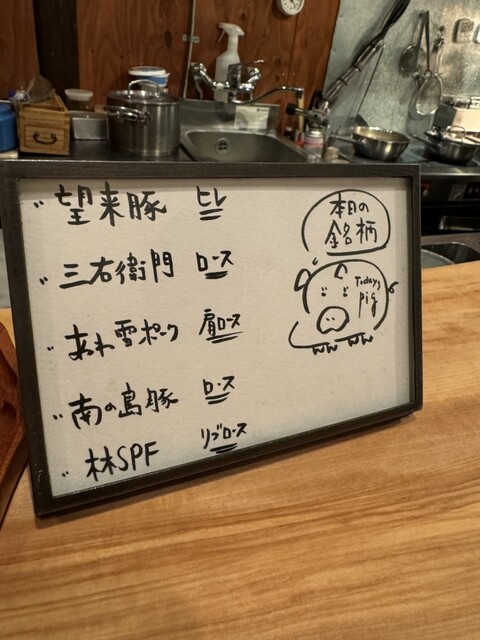 〃望来豚 ヒレ
〃三右衛門 ロース
〃あわ雪ポーク 肩ロース
〃南の島豚 ロース
〃林SPF リブロース
本日の
銘柄
Today's
pig